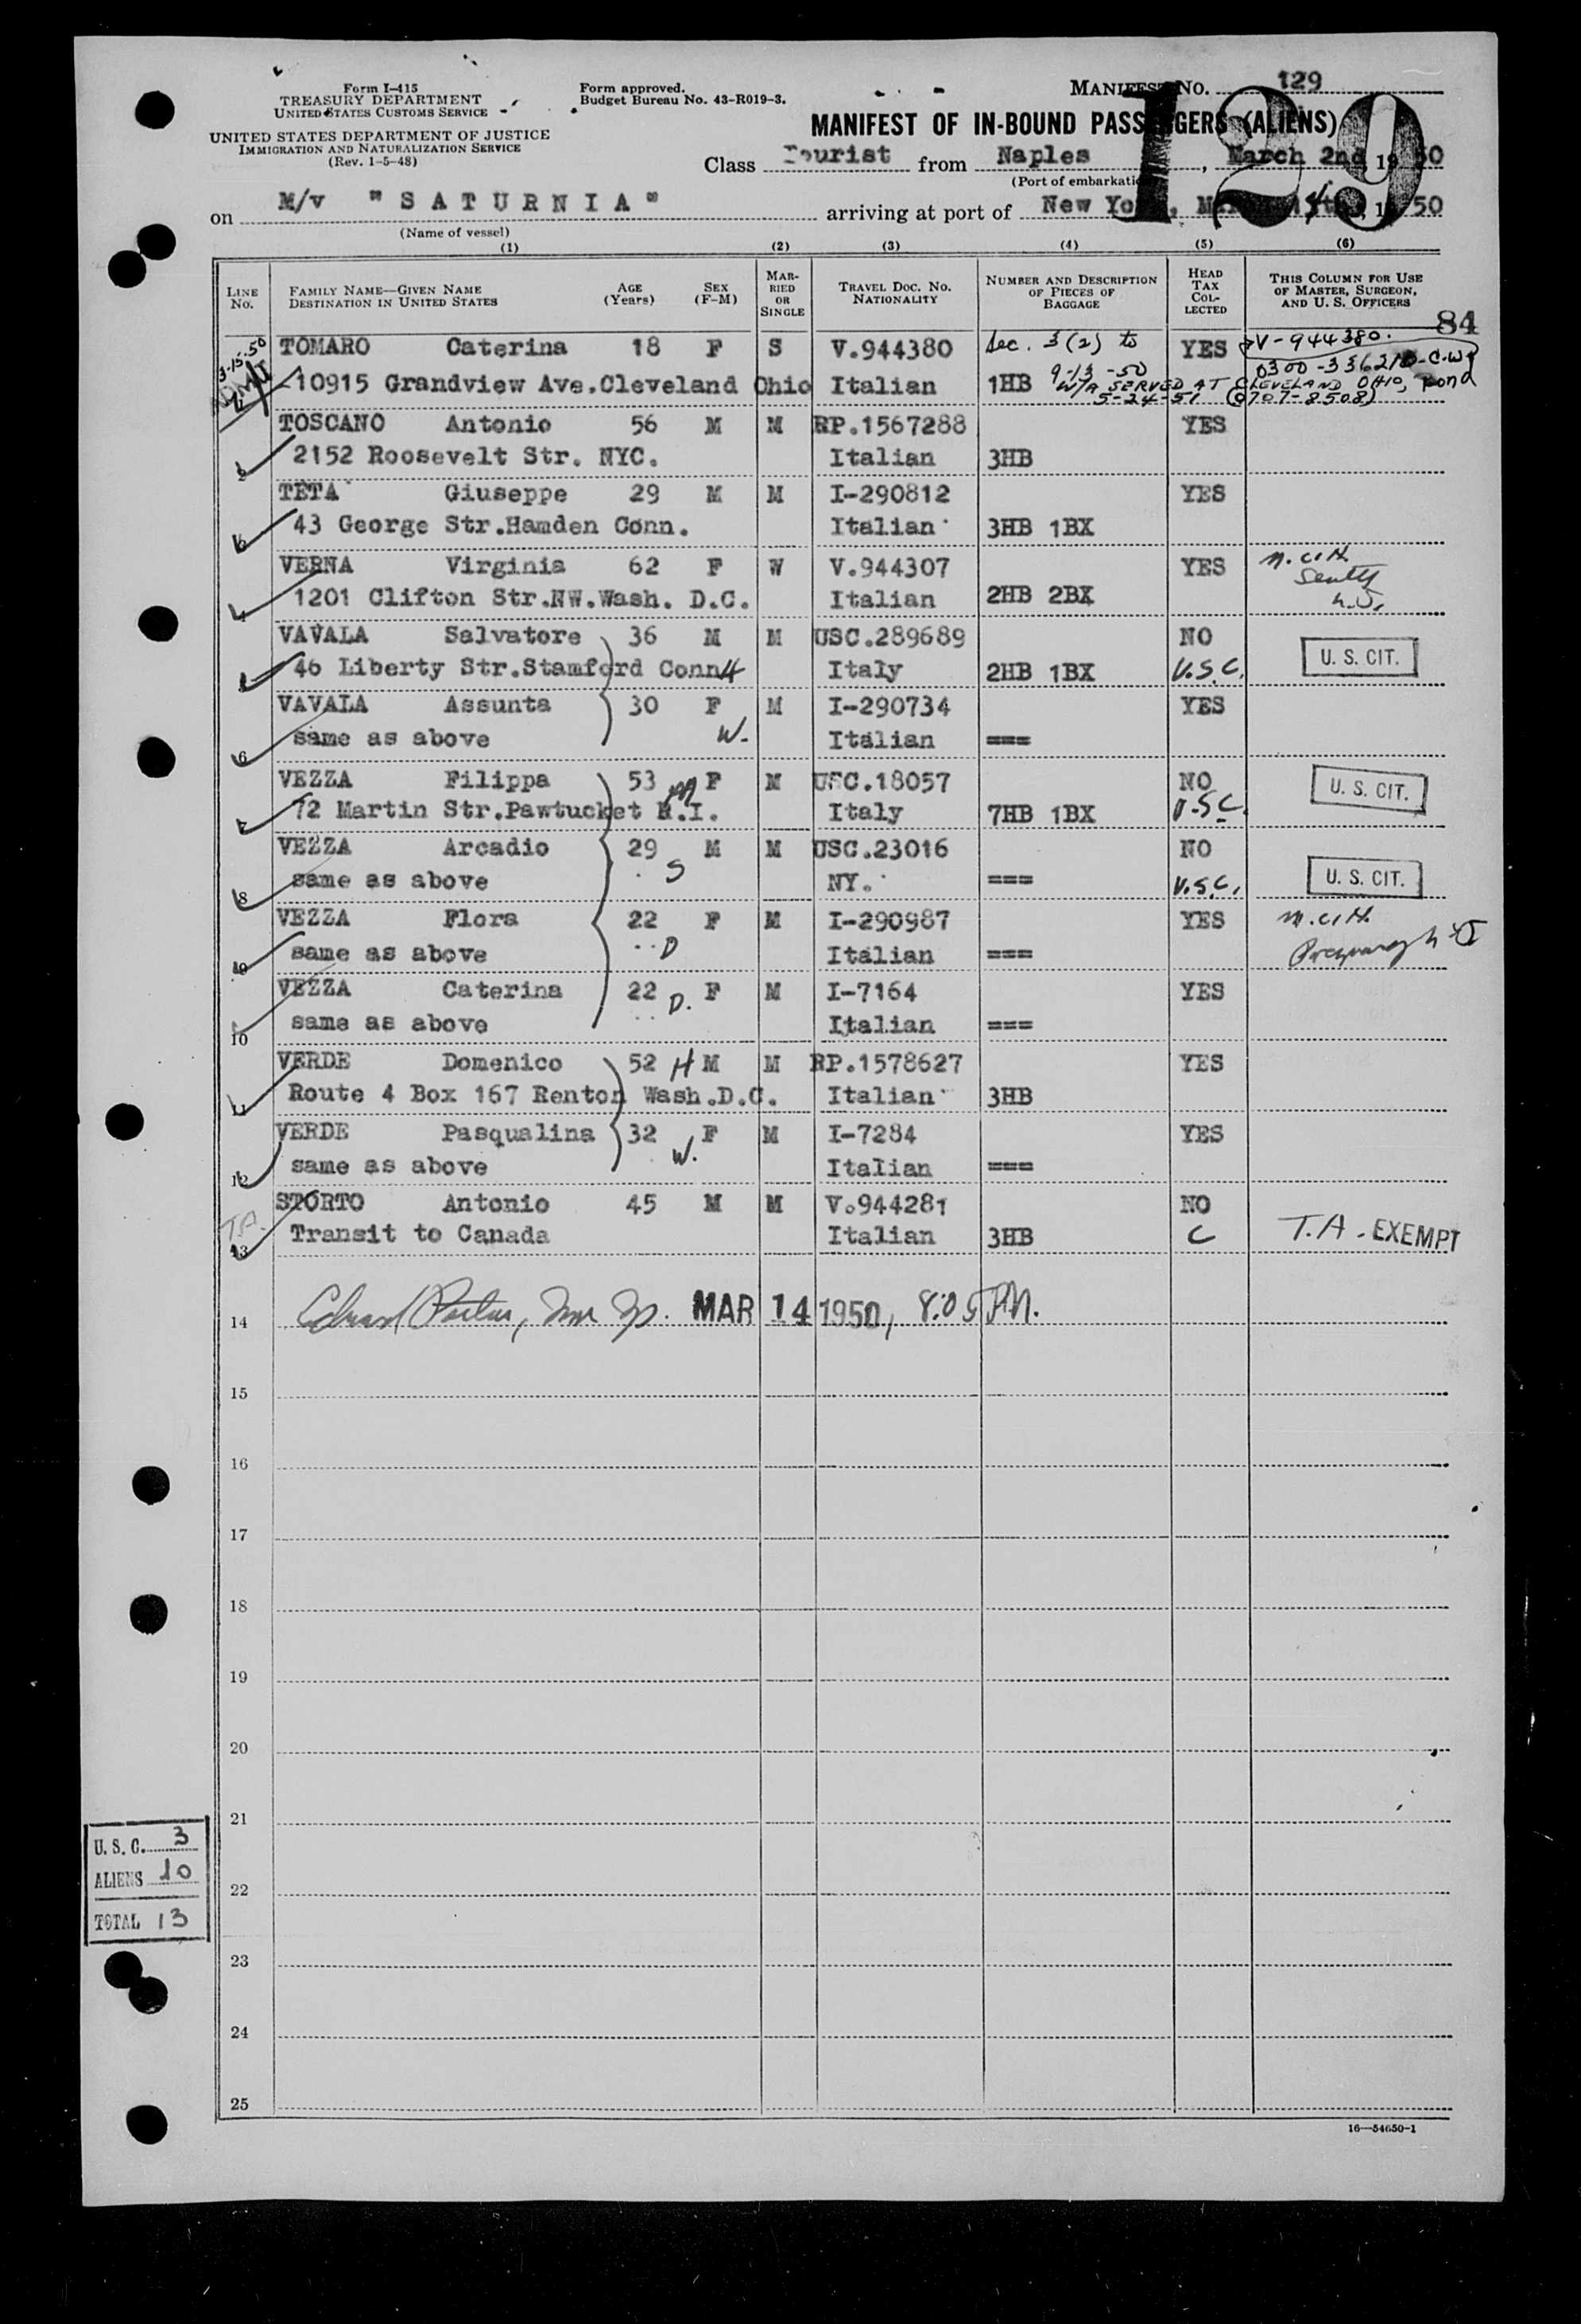 Form I-415
TREASURY DEPARTMENT
UNITED STATES CUSTOMS SERVICE
UNITED STATES DEPARTMENT OF JUSTICE
IMMIGRATION AND NATURALIZATION SERVICE
(Rev. 1-5-48)
Form approved.
Budget Bureau No. 43-R019-3.
MANIFEST No. 129
129
MANIFEST OF IN-BOUND PASSENGERS (ALIENS)
Class Tourist from Naples, March 2nd, 1950
(Port of embarkation)
on M/v "SATURNIA" arriving at port of New York, 1950
(Name of vessel)
(1) (2) (3) (4) (5) (6)
LINE No. FAMILY NAME—GIVEN NAME DESTINATION IN UNITED STATES AGE (Years) SEX (F-M) MARRIED OR SINGLE TRAVEL DOC. NO. NATIONALITY NUMBER AND DESCRIPTION OF PIECES OF BAGGAGE HEAD TAX COLLECTED THIS COLUMN FOR USE OF MASTER, SURGEON, AND U. S. OFFICERS
84
3-15-50
TOMARO Caterina 18 F S V.944380 Sec. 3(2) to YES V-944380.
9-13-50 0300-336210-C.W.
10915 Grandview Ave.Cleveland Ohio Italian 1HB W/A SERVED AT CLEVELAND OHIO, Bond
5-24-51 (0707-8508)
TOSCANO Antonio 56 M M RP.1567288 YES
2152 Roosevelt Str. NYC. Italian 3HB
TETA Giuseppe 29 M M I-290812 YES
43 George Str.Hamden Conn. Italian 3HB 1BX
VERNA Virginia 62 F W V.944307 YES M.C.H.
1201 Clifton Str.NW.Wash. D.C. Italian 2HB 2BX
VAVALA Salvatore 36 M M USC.289689 NO U. S. CIT.
46 Liberty Str.Stamford Conn H Italy 2HB 1BX U.S.C.
VAVALA Assunta 30 F M I-290734 YES
6 same as above W. Italian ===
VEZZA Filippa 53 F M USC.18057 NO U. S. CIT.
7 72 Martin Str.Pawtucket R.I. M Italy 7HB 1BX U.S.C.
VEZZA Arcadio 29 M M USC.23016 NO
8 same as above S NY. === U.S.C. U. S. CIT.
VEZZA Flora 22 F M I-290987 YES M.C.H.
same as above D Italian === Pregnancy
VEZZA Caterina 22 D. F M I-7164 YES
10 same as above Italian ===
VERDE Domenico 52 H M M RP.1578627 YES
11 Route 4 Box 167 Renton Wash.D.C. Italian 3HB
VERDE Pasqualina 32 F M I-7284 YES
12 same as above W. Italian ===
STORTO Antonio 45 M M V.944281 NO
T.A. 13 Transit to Canada Italian 3HB C T.A - EXEMPT
14 MAR 14 1950, 8:05 PM.
15
16
17
18
19
20
21
22
23
24
25
U. S. C. 3
ALIENS 10
TOTAL 13
16—54650-1